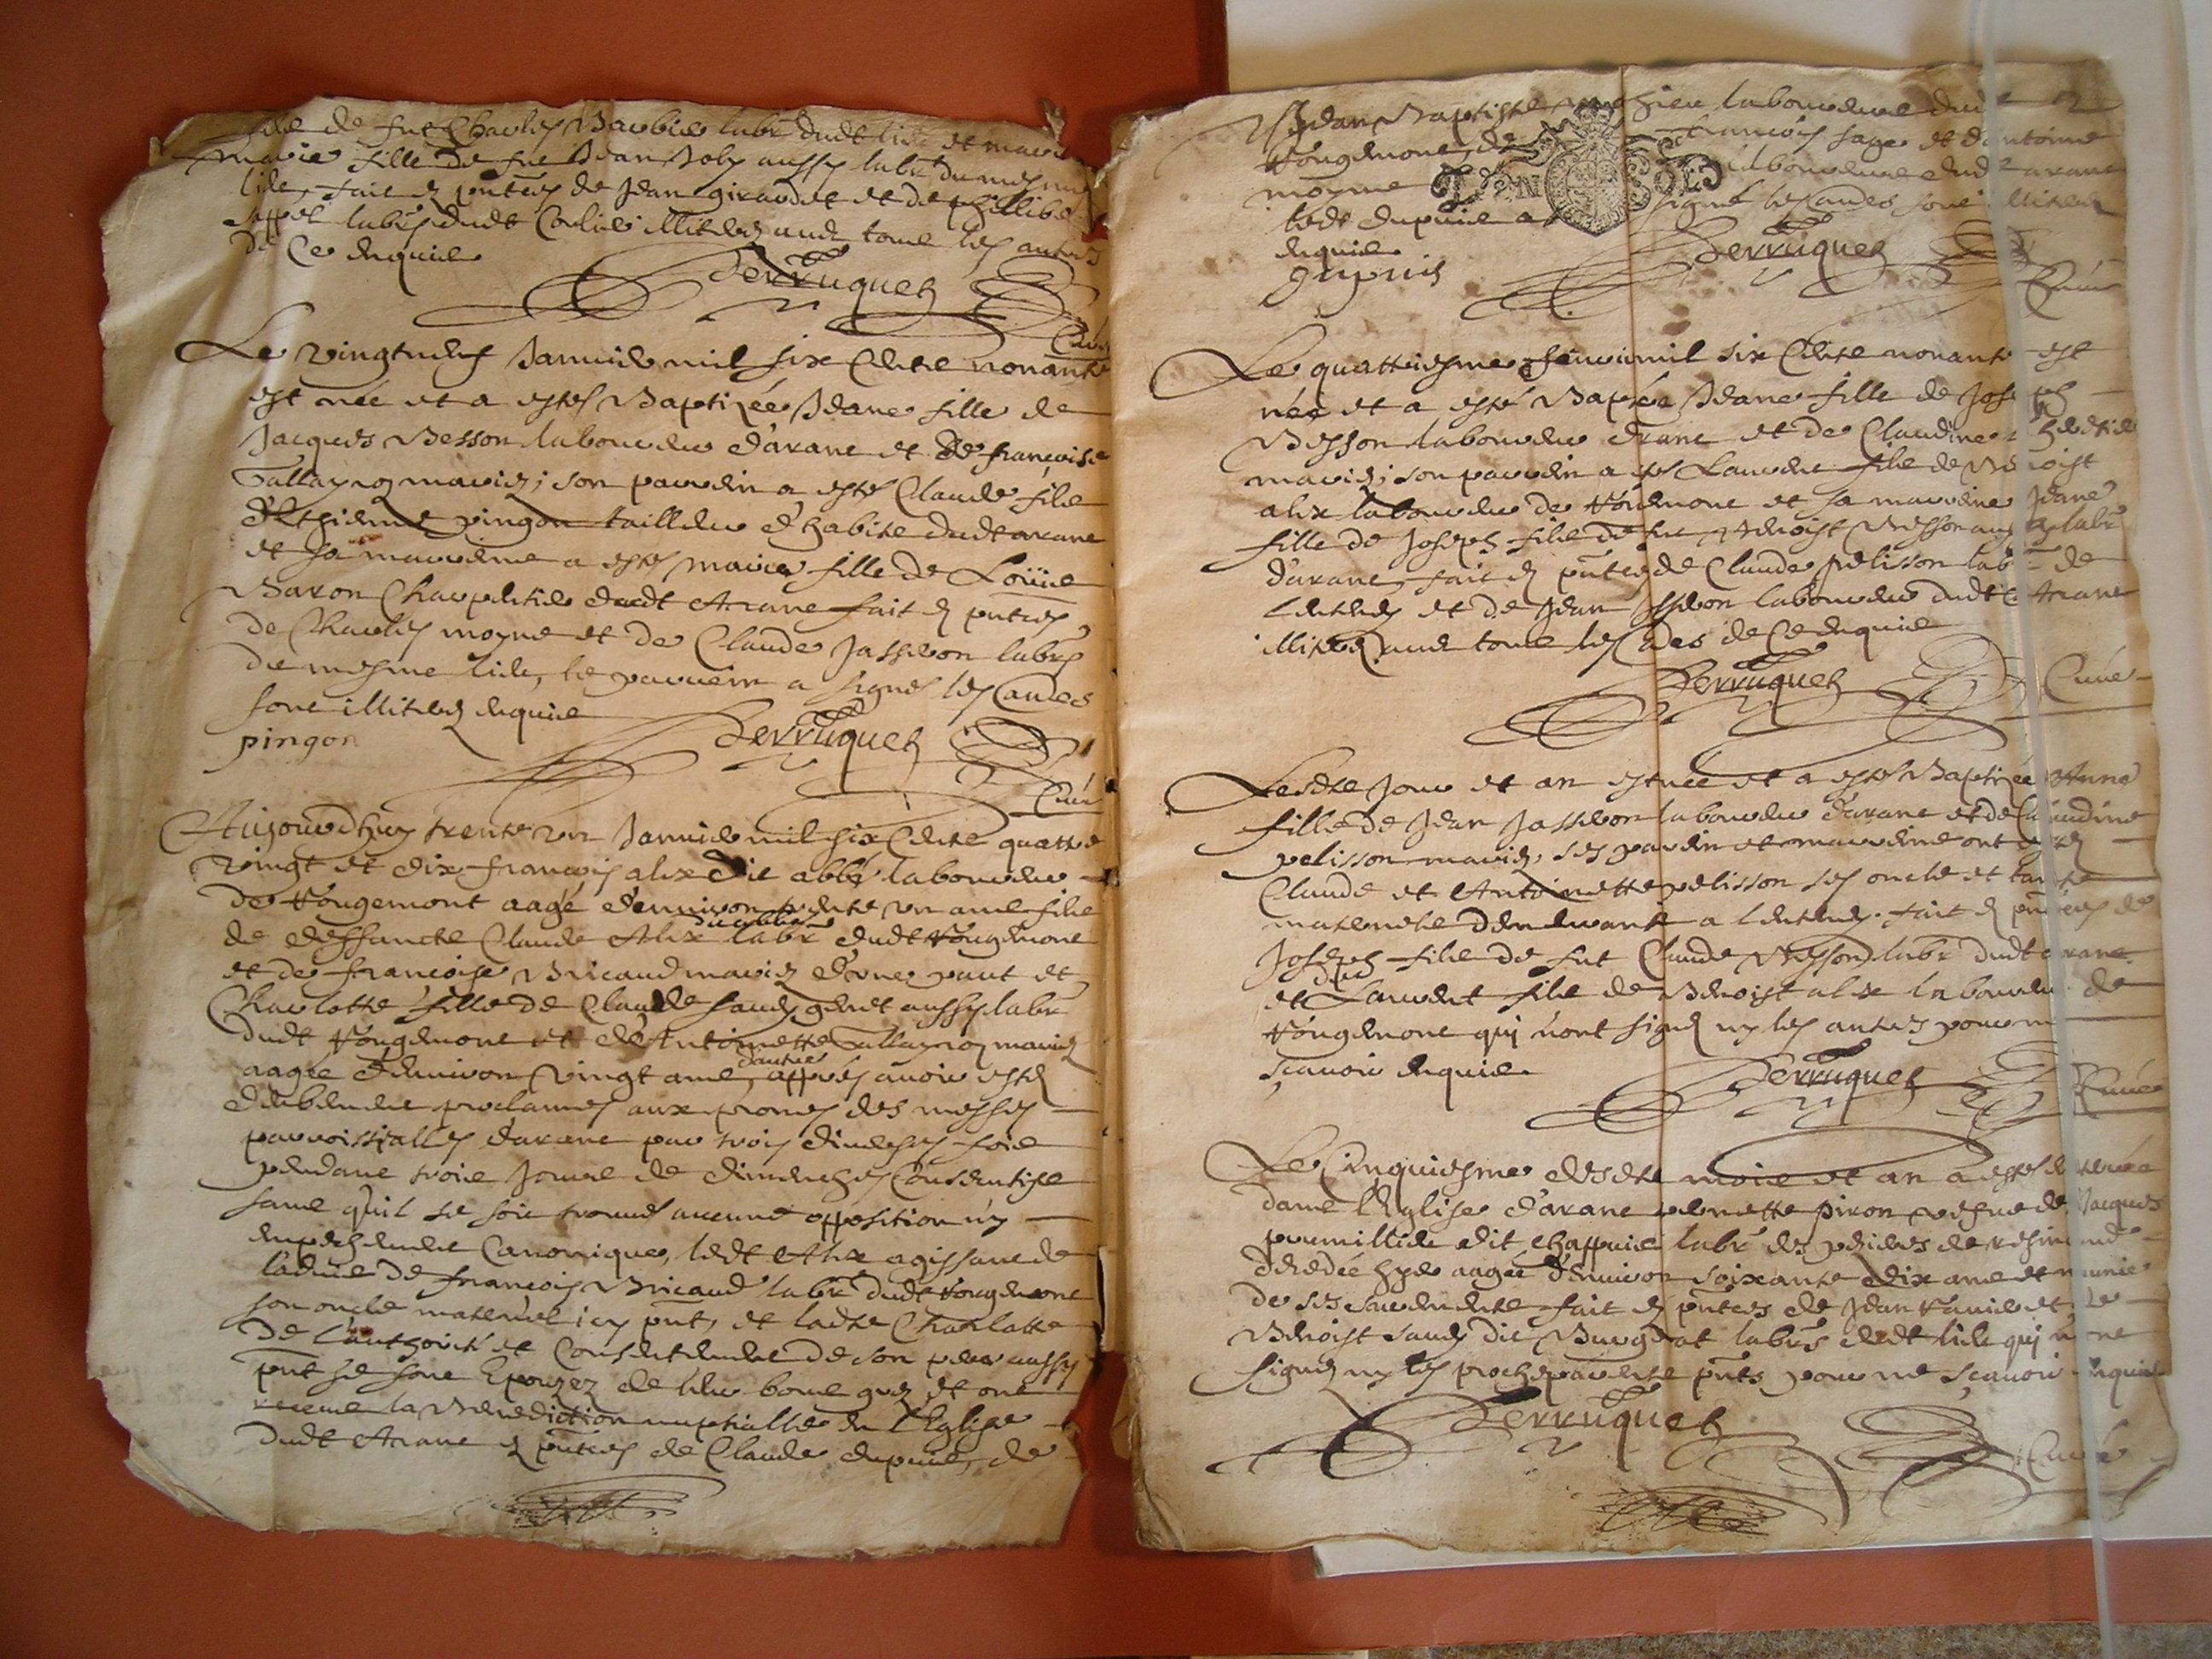 file de fut Charles Barbier labr dudt lieu et
marie fille de fut Jean Joly aussy labr du mesme
lieu, fait es pntces de Jean giraudet et de phillibe
appel labrs dudt Corlier illiterez avec tous les autres
de Ce enquis
Perruquet
Curé
Le vingtneuf Janvier mil six Cents nonante
est née et a estes Baptizée Jeane fille de
Jacques Besson laboureur d'arane et de françoise
Tallayron mariez; son parrein a estes Claude file
d'Ethienne pingon tailleur d'habits dudt arane
et sa marreine a estes marie fille de Loüis
Baron Charpentier dudt Arane fait es pntces
de Charles moyne et de Claude Jasseron labrs
du mesme lieu, le parrein a signes les autres
sont illiterez enquis
pingon
Perruquet
Curé
Aujourdhuy trente un Janvier mil six Cents quattre
vingt et dix françois alix dit abbé laboureur
de Rougemont aagé d'environ trente un ans file
de deffuncts Claude Alix labr dudt Rougemont
et de françoise Bricaud mariez d'une part et
Charlotte fille de Claude Sauge aussy labr
dudt Rougemont et d'Antoinette Tallayron mariez
aagée d'environ vingt ans, d'autre appres avoir estes
deubement proclames aux prones des messes
parroissialles d'arane par trois diverses fois
pendant trois Jours de dimenches Consecutifs
sans qu'il se soit trouvé aucune opposition ny
enpechement Canonique, ledt Alix agissant de
l'advis de françois Bricaud labr dudt Rougemont
son oncle maternel icy pnt, et ladte Charlotte
de l'authorité et Consentement de son pere aussy
pnt se sont Epousez de leur bon gré et ont
receu la Benediction nuptialle en l'Eglise
dudt Arane es pntces de Claude dupuis, de
Jean Baptiste laboureur dudt
Rougemont, de françois sage et d'antoine
moyne laboureurs dudt arane
ledt dupuis a signé les autres sont illiterez
enquis
Dupuis
Perruquet
Curé
Le quattriesme fevrier mil six Cents nonante est
née et a esté Baptisée Jeane fille de Joseph
Besson laboureur d'arane et de Claudine
mariez; son parrein a estes Laurent file de Benoist
alix laboureur de Rougemont et sa marreine Jeane
fille de Joseph file de fut Benoist Besson aussy labr
d'arane, fait es pntces de Claude pelisson labr de
Lentenay et de Jean Jasseron laboureur dudt Arane
illiterez avec tous les autres de Ce enquis
Perruquet
Curé
Lesdts Jour et an est née et a estes Baptizée Anne
fille de Jean Jasseron laboureur d'arane et de Claudine
pelisson mariez, ses parrein et marreine ont estes
Claude et Antoinette pelisson ses oncle et tante
maternels demeurants a Lentenay. fait es pntces de
Joseph file de fut Claude Besson labr dudt arane
et dud Laurent file de Benoist alix laboureur de
Rougemont qui n'ont signez ny les autres pour ne
scavoir enquis.
Perruquet
Curé
Le Cinquiesme desdts mois et an a estes enterrée
dans l'Eglise d'arane pernette piron vefve de Jacques
pourmillieu dit Chappuis labr
decedée hyer aagée d'environ soixante dix ans et munie
de ses sacrements fait es pntces de Jean Ravier et de
Benoist Sauge dit Burgnat labrs dudt lieu qui n'ont
signez ny les proches parents pnts pour ne scavoir enquis
Perruquet
Curé